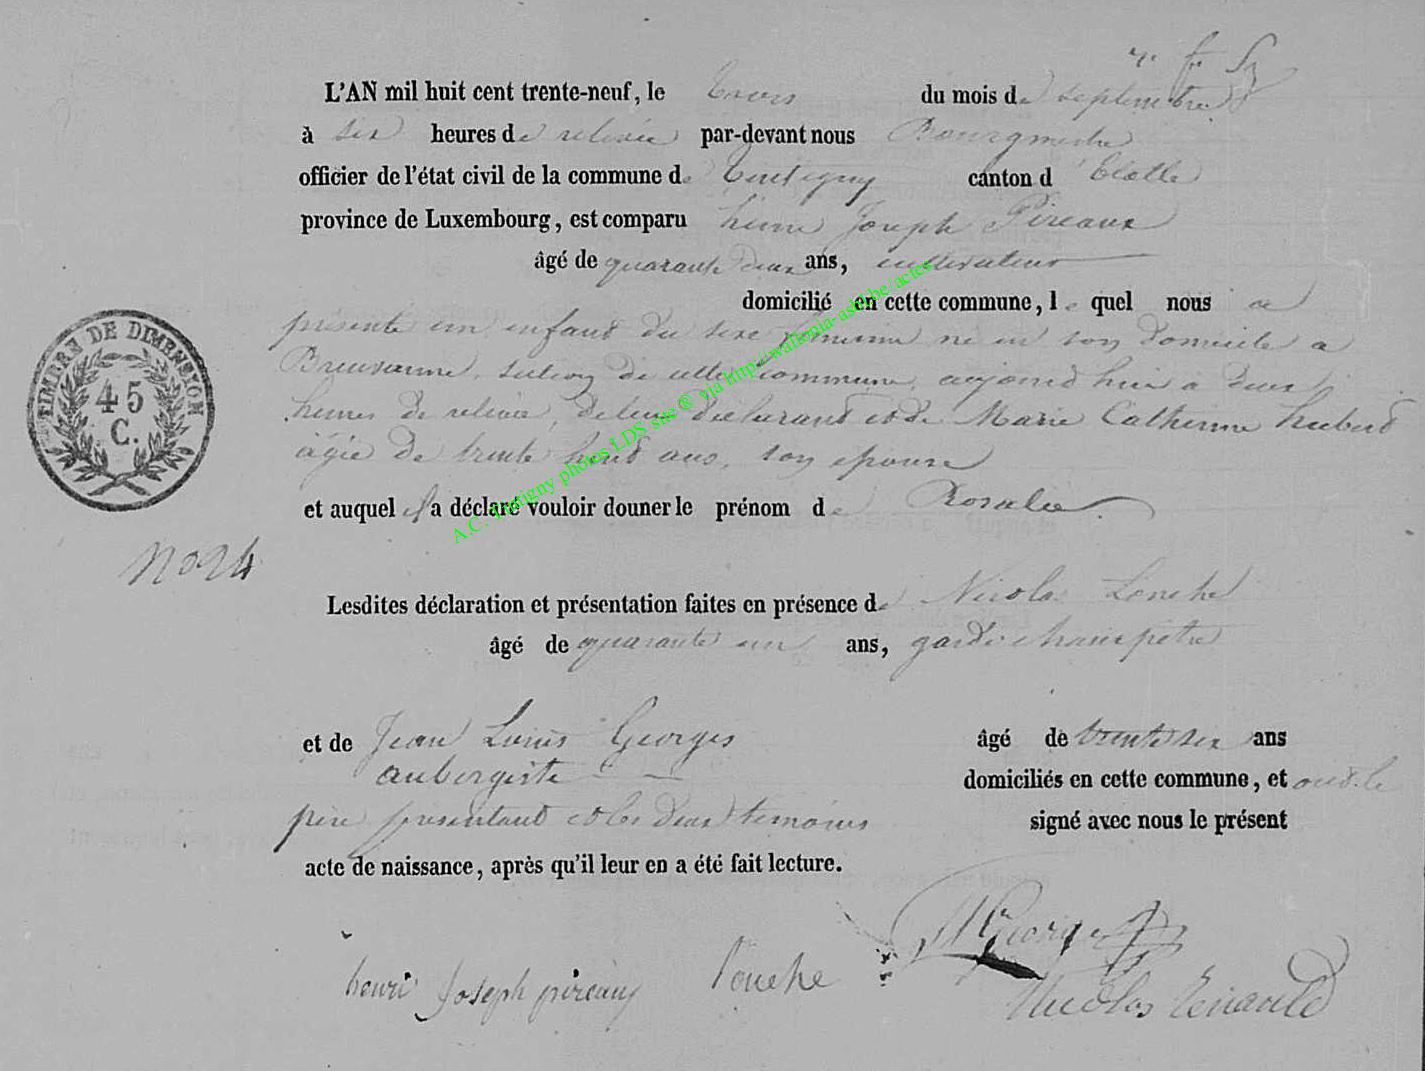 L'AN mil huit cent trente-neuf, le trois du mois de septembre
à six heures de relevée par-devant nous Bourgmestre
officier de l'état civil de la commune de Tintigny canton d'Etalle
province de Luxembourg, est comparu henri Joseph Pireaux
âgé de quarante deux ans, cultivateur
domicilié en cette commune, lequel nous a
présenté un enfant du sexe féminin né en son domicile a
Breuvanne, section de cette commune, aujourd hui a deux
heures de relevée, de lui déclarant et de Marie Catherine hubert
âgée de trente huit ans, son epouse
et auquel il a déclaré vouloir donner le prénom de Rosalie
TIMBRE DE DIMENSION
45
C.
No 24
Lesdites déclaration et présentation faites en présence de Nicolas Louche
âgé de quarante un ans, garde champetre
et de Jean Louis Georges âgé de trente six ans
aubergiste domiciliés en cette commune, et ont le
père présentant et les deux témoins signé avec nous le présent
acte de naissance, après qu'il leur en a été fait lecture.
henri Joseph pireaux Louche Georges
Nicolas Renauld
A.C. Tintigny photos LDS site ® via http://wallonia-asbl.be/actes